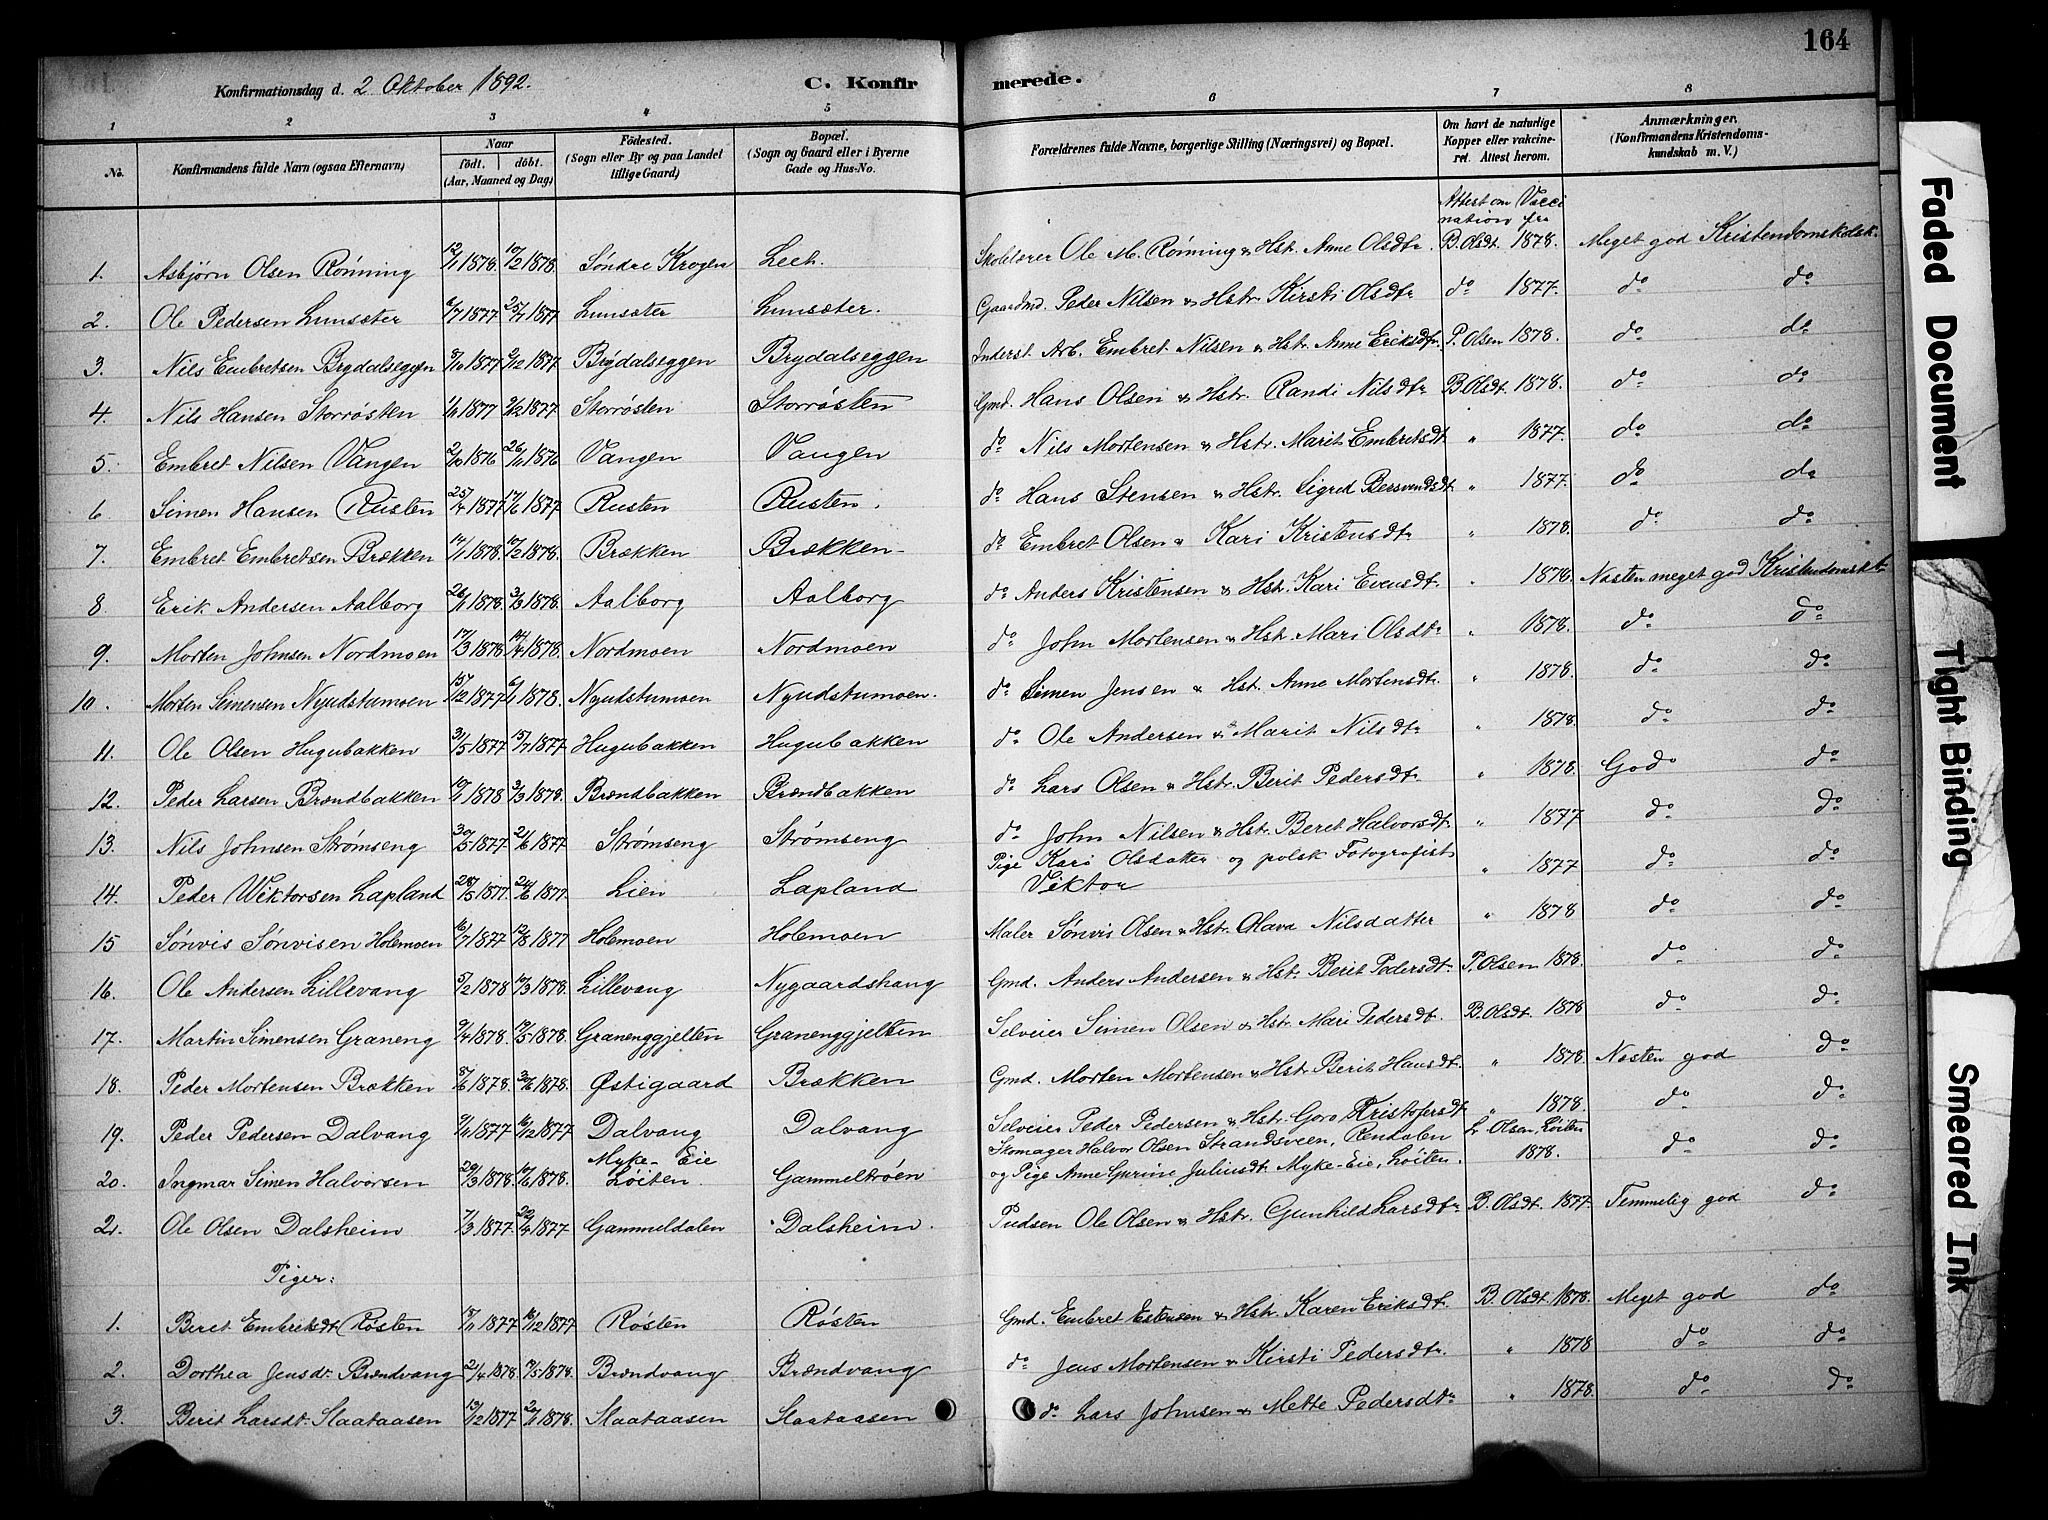 164
Konfirmationsdag d. 2 Oktober 1892. C. Konfirmerede.
1 2 3 4 5 6 7 8
No. Konfirmandens fulde Navn (ogsaa Efternavn) Naar født. døbt. (Aar, Maaned og Dag) Fødested. (Sogn eller By og paa Landet tillige Gaard) Bopæl. (Sogn og Gaard eller i Byerne Gade og Hus-No. Forældrenes fulde Navne, borgerlige Stilling (Næringsvei) og Bopæl. Om havt de naturlige Kopper eller vakcineret. Attest herom. Anmærkninger. (Konfirmandens Kristendomskundskab m. V.)
Attest om Vaccination fra
1. Asbjørn Olsen Rønning 12/1 1878 10/2 1878. Søndre Krogen Leet. Skolelærer Ole M. Rønning & Hstr. Anne Olsdtr. B. Olsdt. 1878. Meget god Kristendomskdsk.
2. Ole Pedersen Lunsæter 6/7 1877 25/7 1877 Lunsæter Lunsæter. Gaardmd. Peder Nilsen & Hstr. Kirsti Olsdtr do 1877. do do
3. Nils Embretsen Brydalseggen 8/10 1877 2/12 1877. Brydalseggen Brydalseggen Inderst. Arb. Embret Nilsen & Hstr. Anne Eriksdtr. P. Olsen 1878. do do
4. Nils Hansen Storrøsten 1/11 1877 2/12 1877. Storrøsten Storrøsten Gmd. Hans Olsen & Hstr. Randi Nilsdtr B. Olsdt. 1878. do do
5. Embret Nilsen Vangen 2/10 1876 26/11 1876 Vangen Vangen do Nils Mortensen & Hstr. Marit Embretsdt. " 1877. do do
6 Simen Hansen Rusten 25/4 1877 17/6 1877 Rusten Rusten. do Hans Stensen & Hstr. Sigrid Bersvendsdt. " 1877. do do
7. Embret Embretsen Brækken 17/1 1878. 10/2 1878. Brækken Brækken do Embret Olsen & Kari Kristensdtr " 1878. do do
8 Erik Andersen Aalborg 26/1 1878. 3/3 1878. Aalborg Aalborg do Anders Kristensen & Hstr. Kari Evensdt. " 1878. Næsten meget god Kristendomskt
9. Morten Johnsen Nordmoen 17/3 1878 14/4 1878. Nordmoen Nordmoen do John Mortensen & Hstr. Mari Olsdtr " 1878. do do
10. Morten Simensen Nyudstumoen 15/12 1877 6/1 1878. Nyudstumoen Nyudstumoen. do Simen Jensen & Hstr. Anne Mortensdtr. " 1878. do do
11. Ole Olsen Hugubakken 31/5 1877 15/7 1877. Hugubakken Hugubakken do Ole Andersen & Marit Nilsdtr " 1878. do do
12. Peder Larsen Brændbakken 10/1 1878 3/3 1878. Brændbakken Brændbakken do Lars Olsen & Hstr. Berit Pedersdtr. " 1878. God do
13. Nils Johnsen Strømseng 30/5 1877 21/6 1877 Strømseng Strømseng do John Nilsen & Hstr. Beret Halvorsdt. " 1877 do do
14. Peder Wiktorsen Lapland 28/5 1877. 24/6 1877. Lien Lapland Pige Kari Olsdatter og polsk Fotografist Viktor " 1877 do do
15 Sønvis Sønvisen Holmoen 16/7 1877 12/8 1877 Holmoen Holmoen Maler Sønvis Olsen & Hstr. Olava Nilsdatter " 1878 do do
16. Ole Andersen Lillevang 5/2 1878 10/3 1878. Lillevang Nygaardshaug Gmd. Anders Andersen & Hstr. Berit Pedersdt. P. Olsen 1878. do do
17. Martin Simensen Graneng 9/4 1878. 12/5 1878. Granenggjelten Granenggjelten Selveier Simen Olsen & Hstr. Mari Pedersdt. B. Olsdt. 1878 do do
18. Peder Mortensen Brækken 8/6 1878. 30/6 1878. Østigaard Brækken Gmd. Morten Mortensen & Hstr. Berit Hansdt. " 1878. Næsten god do
19. Peder Pedersen Dalvang 9/11 1877 16/12 1877 Dalvang Dalvang Selveier Peder Pedersen & Hstr. Goro Kristofersdt " 1878. do do
20. Ingmar Simen Halvorsen 20/3 1878. 10/6 1878. Myke-Eie Løiten. Gammeltrøen Skomager Halvor Olsen Strandsveen, Rendalen og Pige Anne Gurine Juliusdt. Myke-Eie, Løiten. L. Olsen, Løiten 1878. do do
21. Ole Olsen Dalsheim 7/3 1877. 22/4 1877. Gammeldalen Dalsheim. Pudsen Ole Olsen & Hstr. Gunhild Larsdtr B. Olsdt. 1877. Temmelig god do
Piger:
1. Beret Embretsdt. Røsten 18/11 1877 16/12 1877 Røsten Røsten Gmd. Embret Estensen & Hstr. Karen Eriksdt. B. Olsdt. 1878. Meget god do
2. Dorthea Jensdt. Brændvang 21/4 1878. 19/5 1878. Brændvang Brændvang do Jens Mortensen & Kirsti Pedersdtr. " 1878 do do
3. Berit Larsdt. Slaataasen 13/12 1877 20/1 1878. Slaataasen Slaataasen do Lars Johnsen & Mette Pedersdtr " 1878. do do
Faded Document
Tight Binding
Smeared Ink